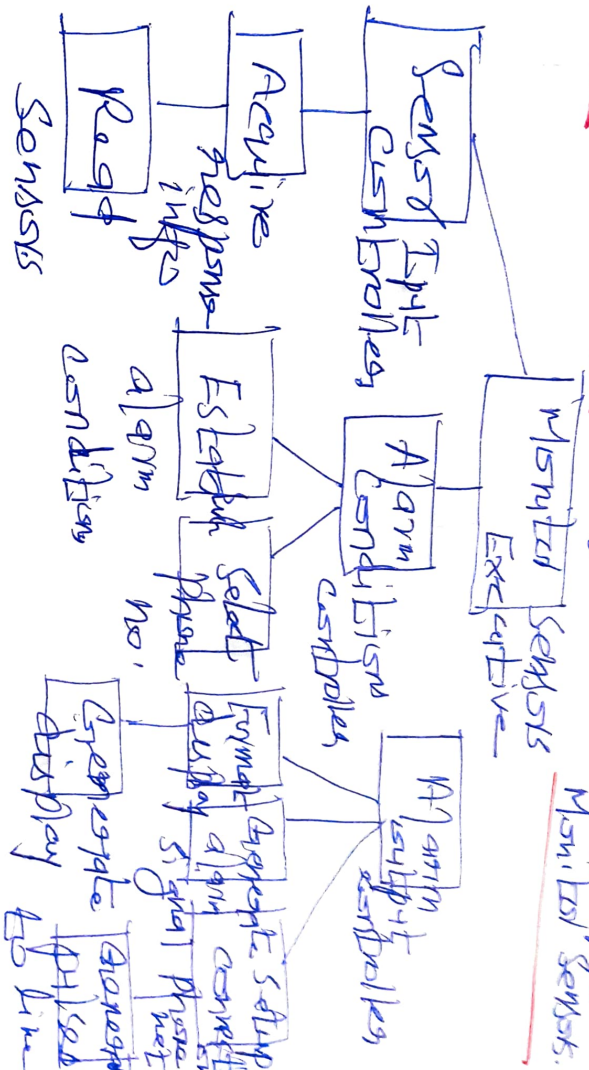 Monitor Sensors.
Monitor Sensors
Executive
Sensor Input
Controller
Alarm
Condition
Controller
Alarm
output
controller
Acquire
response
info
Establish
alarm
condition
Select
phone
no.
Format
display
Generate
alarm
signal
Setup
connect
phone
net
Read
Sensors
Generate
display
Generate
pulses
to line